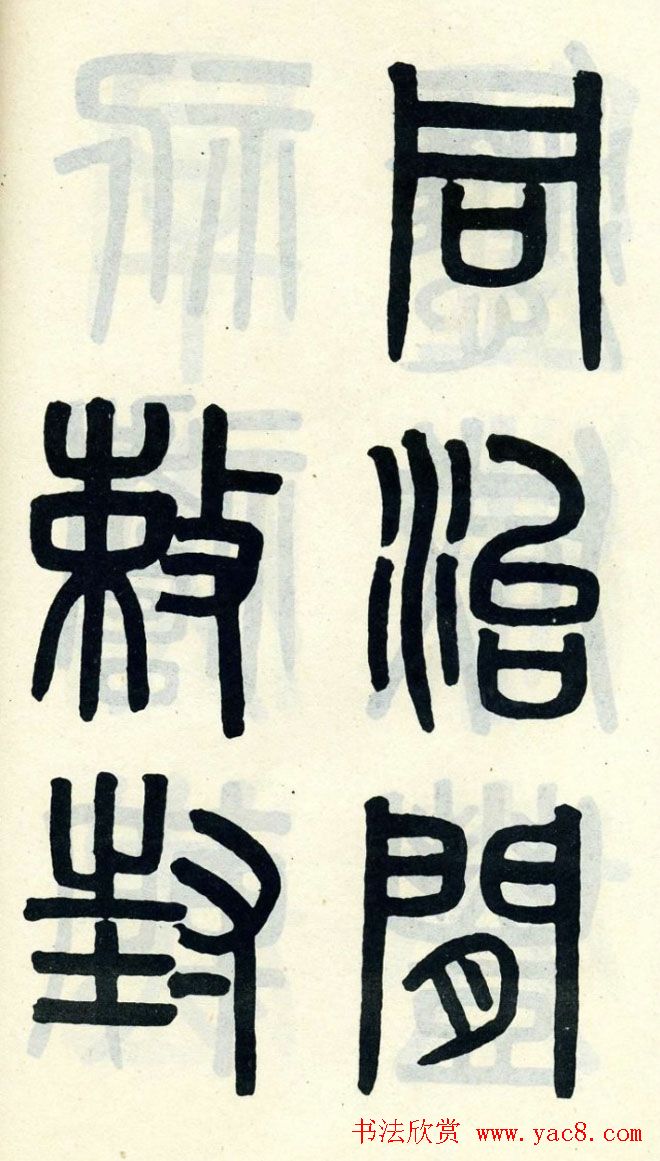 同治閒
敕封
书法欣赏 www.yac8.com